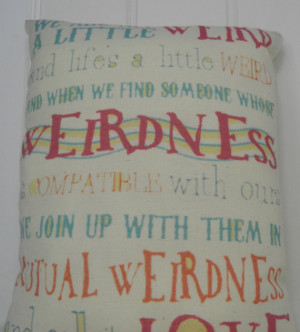 WE ARE A
A LITTLE WEIRD
and life's a little WEIRD
AND WHEN WE FIND SOMEONE WHOSE
WEIRDNESS
is COMPATIBLE with ours
WE JOIN UP WITH THEM IN
MUTUAL WEIRDNESS
and call it LOVE